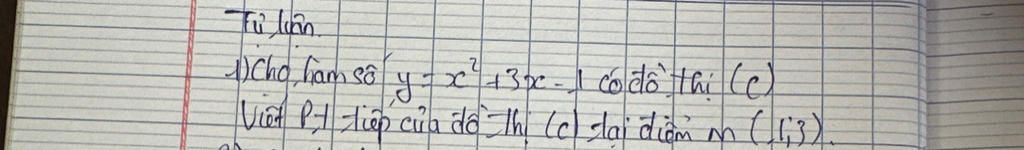 Tự luận.
1) Cho hàm số y = x² + 3x - 1 có đồ thị (C)
Viết P.t tiếp của đồ thị (C) tại điểm M (1;3).